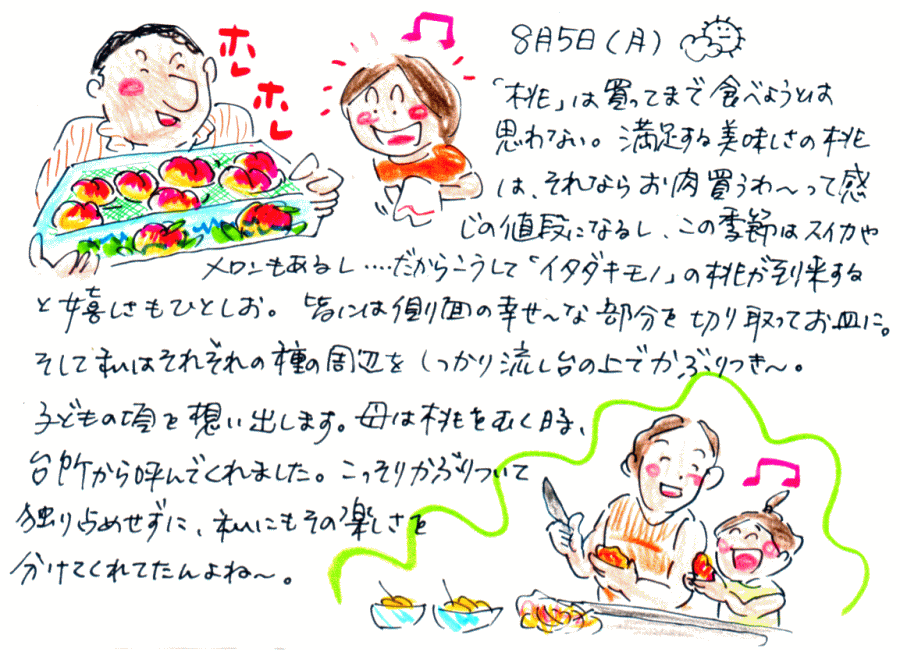 ホレ
ホレ
8月5日(月)
「桃」は買ってまで食べようとは
思わない。満足する美味しさの桃
は、それならお肉買うわ〜って感
じの値段になるし、この季節はスイカや
メロンもあるし・・・・だからこうして「イタダキモノ」の桃が到来する
と嬉しさもひとしお。皆には側面の幸せ〜な部分を切り取ってお皿に。
そして私はそれぞれの種の周辺をしっかり流し台の上でかぶりつき〜。
子どもの頃を想い出します。母は桃をむく時、
台所から呼んでくれました。こっそりかぶりついて
独り占めせずに、私にもその楽しさを
分けてくれてたんよね〜。